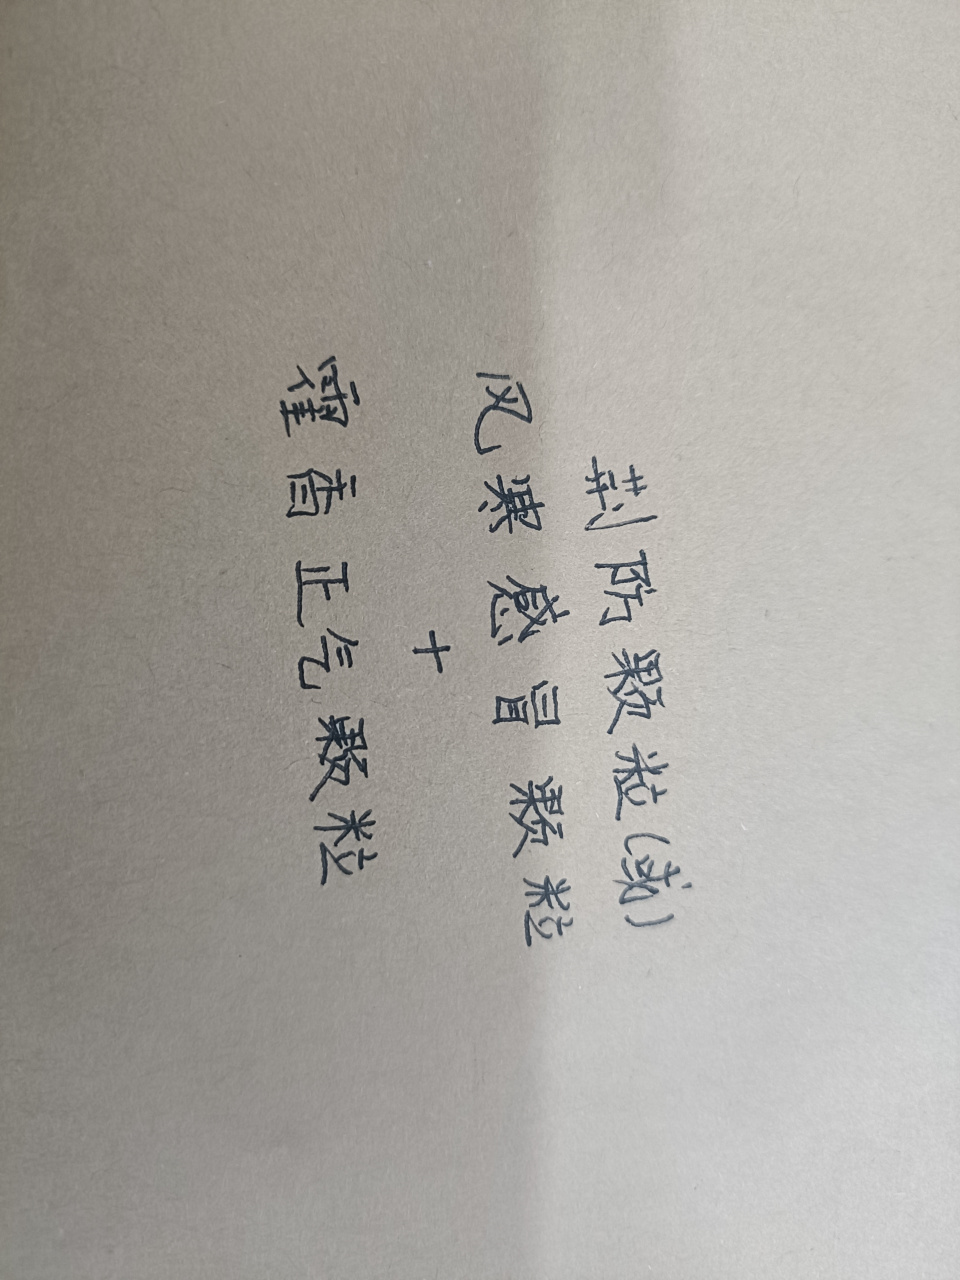 荆防颗粒(或)
风寒感冒颗粒
+
霍香正气颗粒